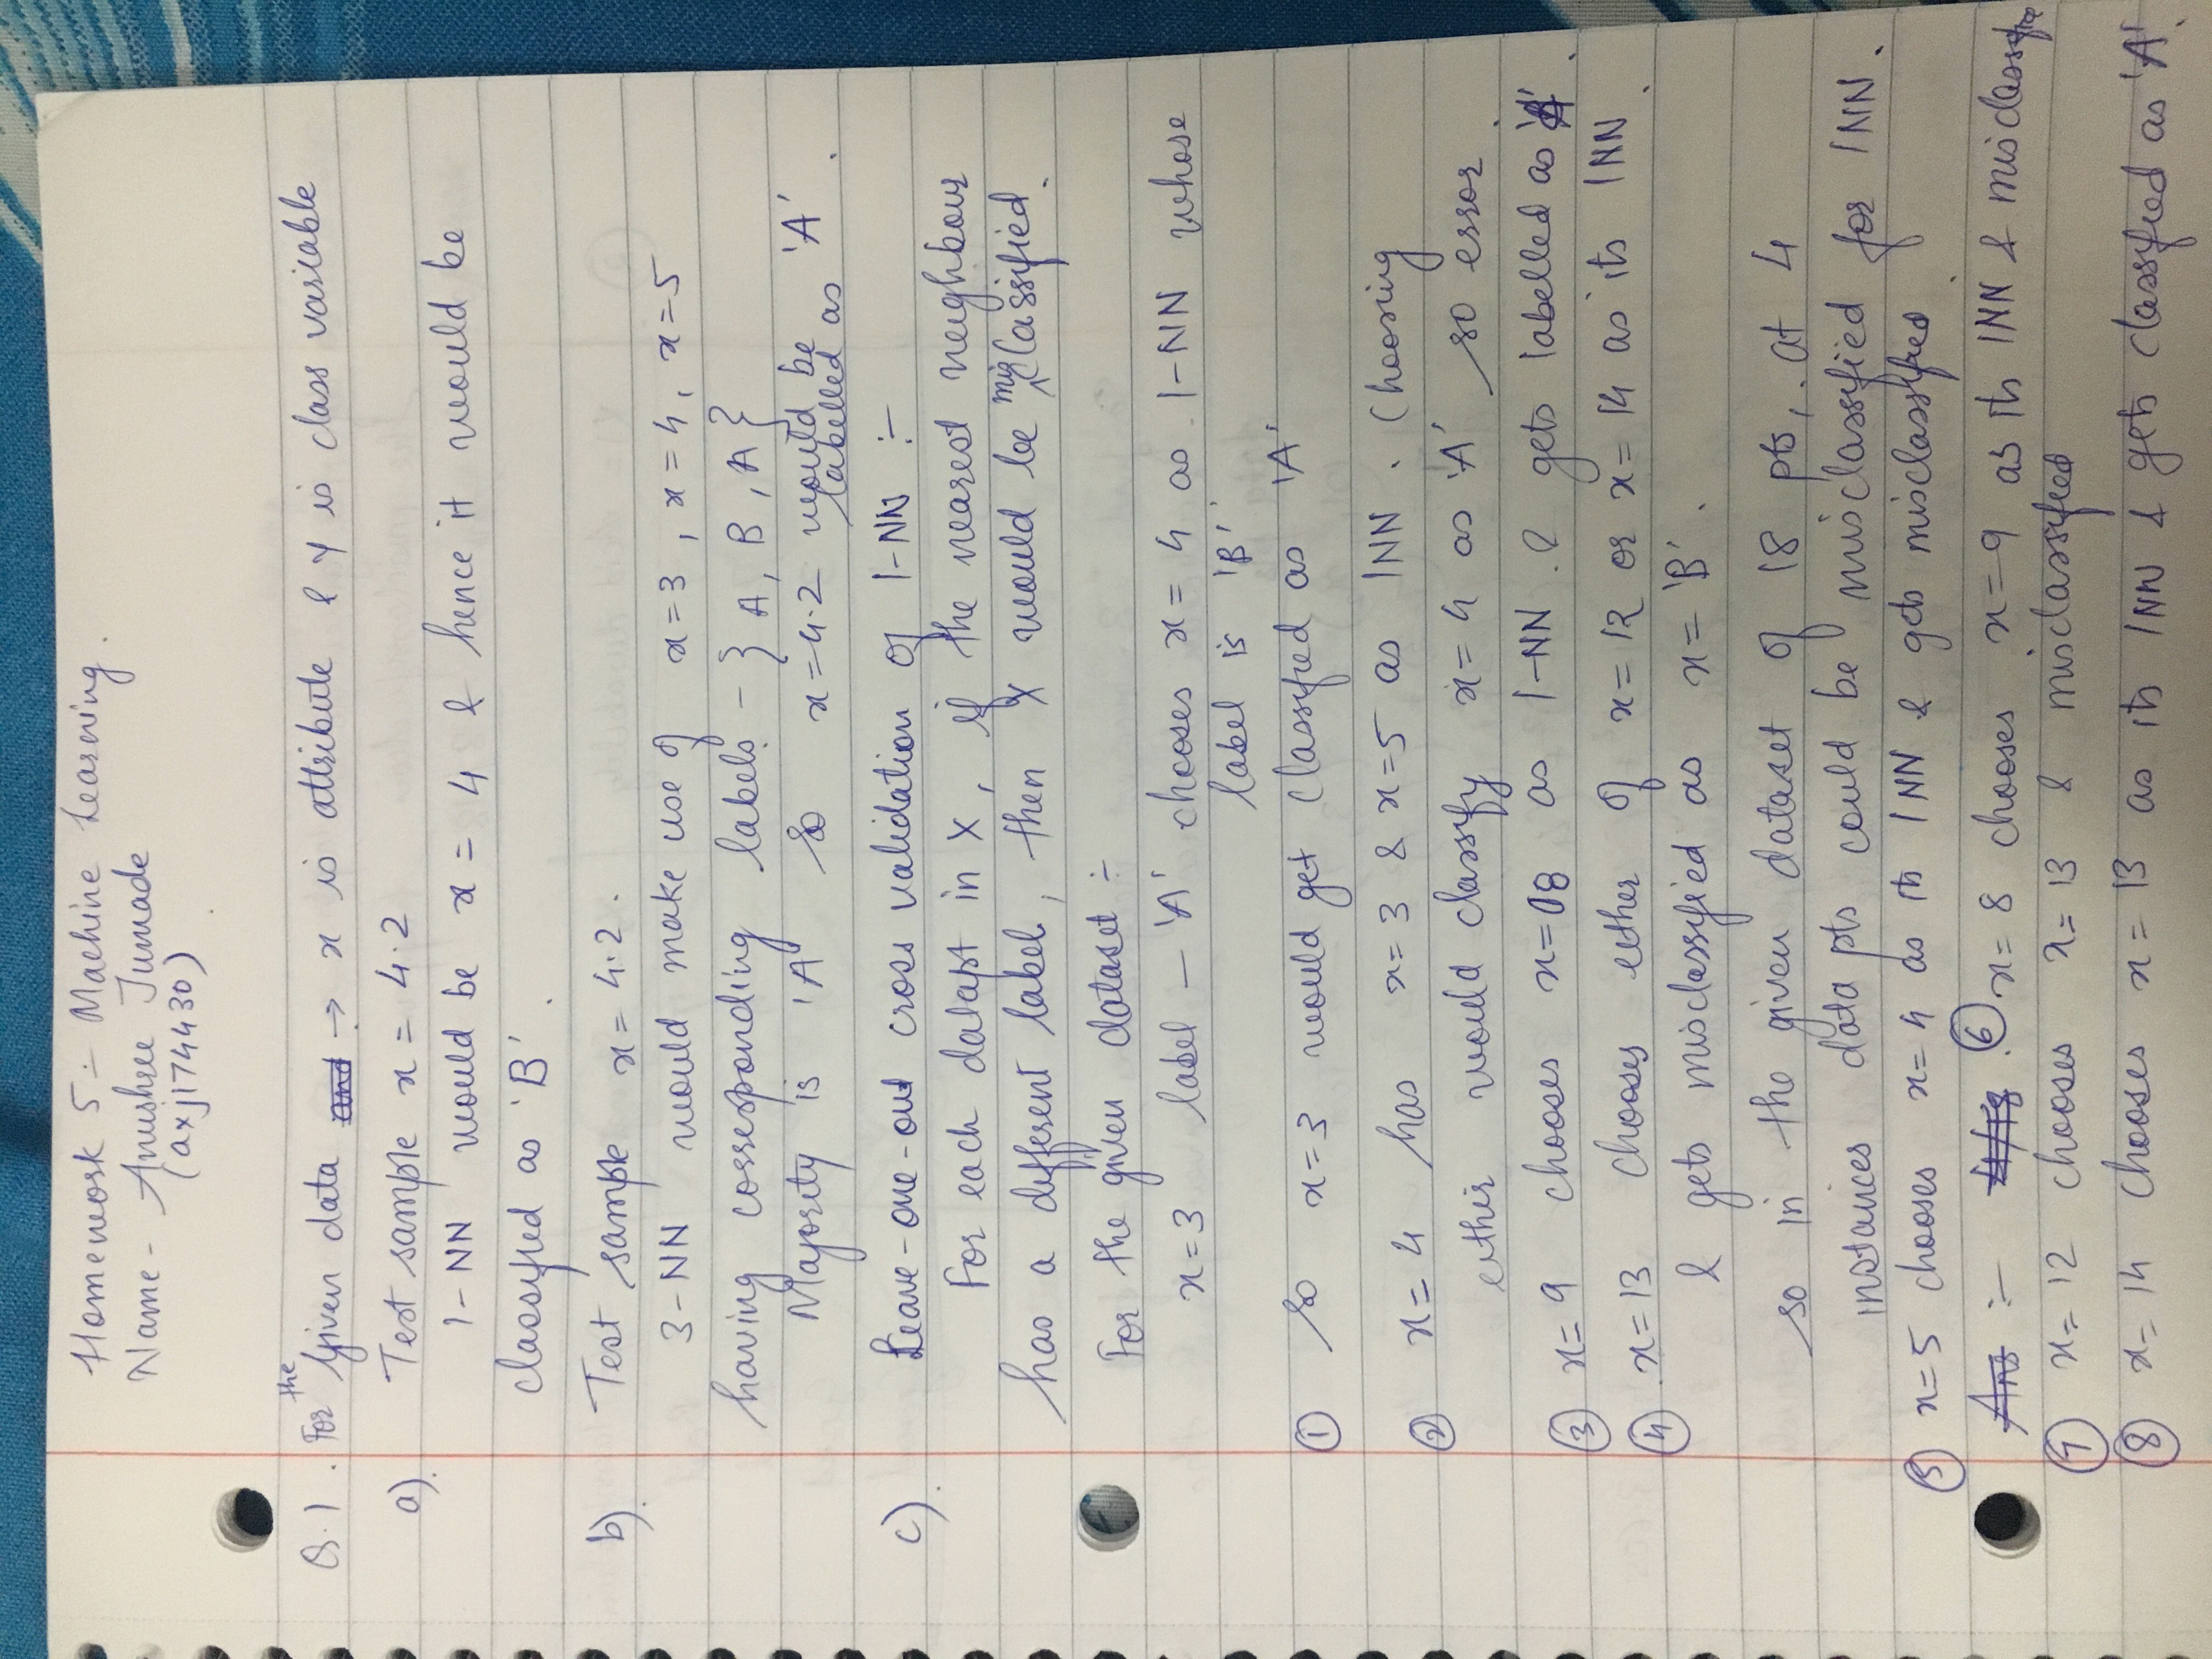 Homework 5 :- Machine Learning.
Name - Anushree Jumade
(axj174430)
Q.1. For the Given data and → x is attribute & Y is class variable
a). Test sample x = 4.2
1-NN would be x = 4 & hence it would be
classified as 'B'.
b). Test sample x = 4.2.
3-NN would make use of x=3, x=4, x=5
having corresponding labels - } A, B, A }
Majority is 'A' So x=4.2 would be labelled as 'A'.
c). Leave-one-out cross validation of 1-NN :-
For each datapt in X, if the nearest neighbour
has a different label, then X would be misclassified.
For the given dataset :-
x=3 label - 'A' chooses x = 4 as 1-NN whose
label is 'B'
① So x=3 would get classified as 'A'
② x=4 has x=3 & x=5 as 1NN. Choosing
either would classify x=4 as 'A' so error.
③ x=9 chooses x=08 as 1-NN. & gets labelled as 'A'.
④ x=13 chooses either of x=12 or x=14 as its 1NN.
& gets misclassified as x= 'B'.
so in the given dataset of 18 pts, at 4
instances data pts could be misclassified for 1NN.
⑤ x=5 chooses x=4 as its 1NN & gets misclassified.
Ans :- 4/18. ⑥ x=8 chooses x=9 as its 1NN & misclassifie
⑦ x=12 chooses x=13 & misclassified
⑧ x=14 chooses x=13 as its 1NN & gets classified as 'A'.